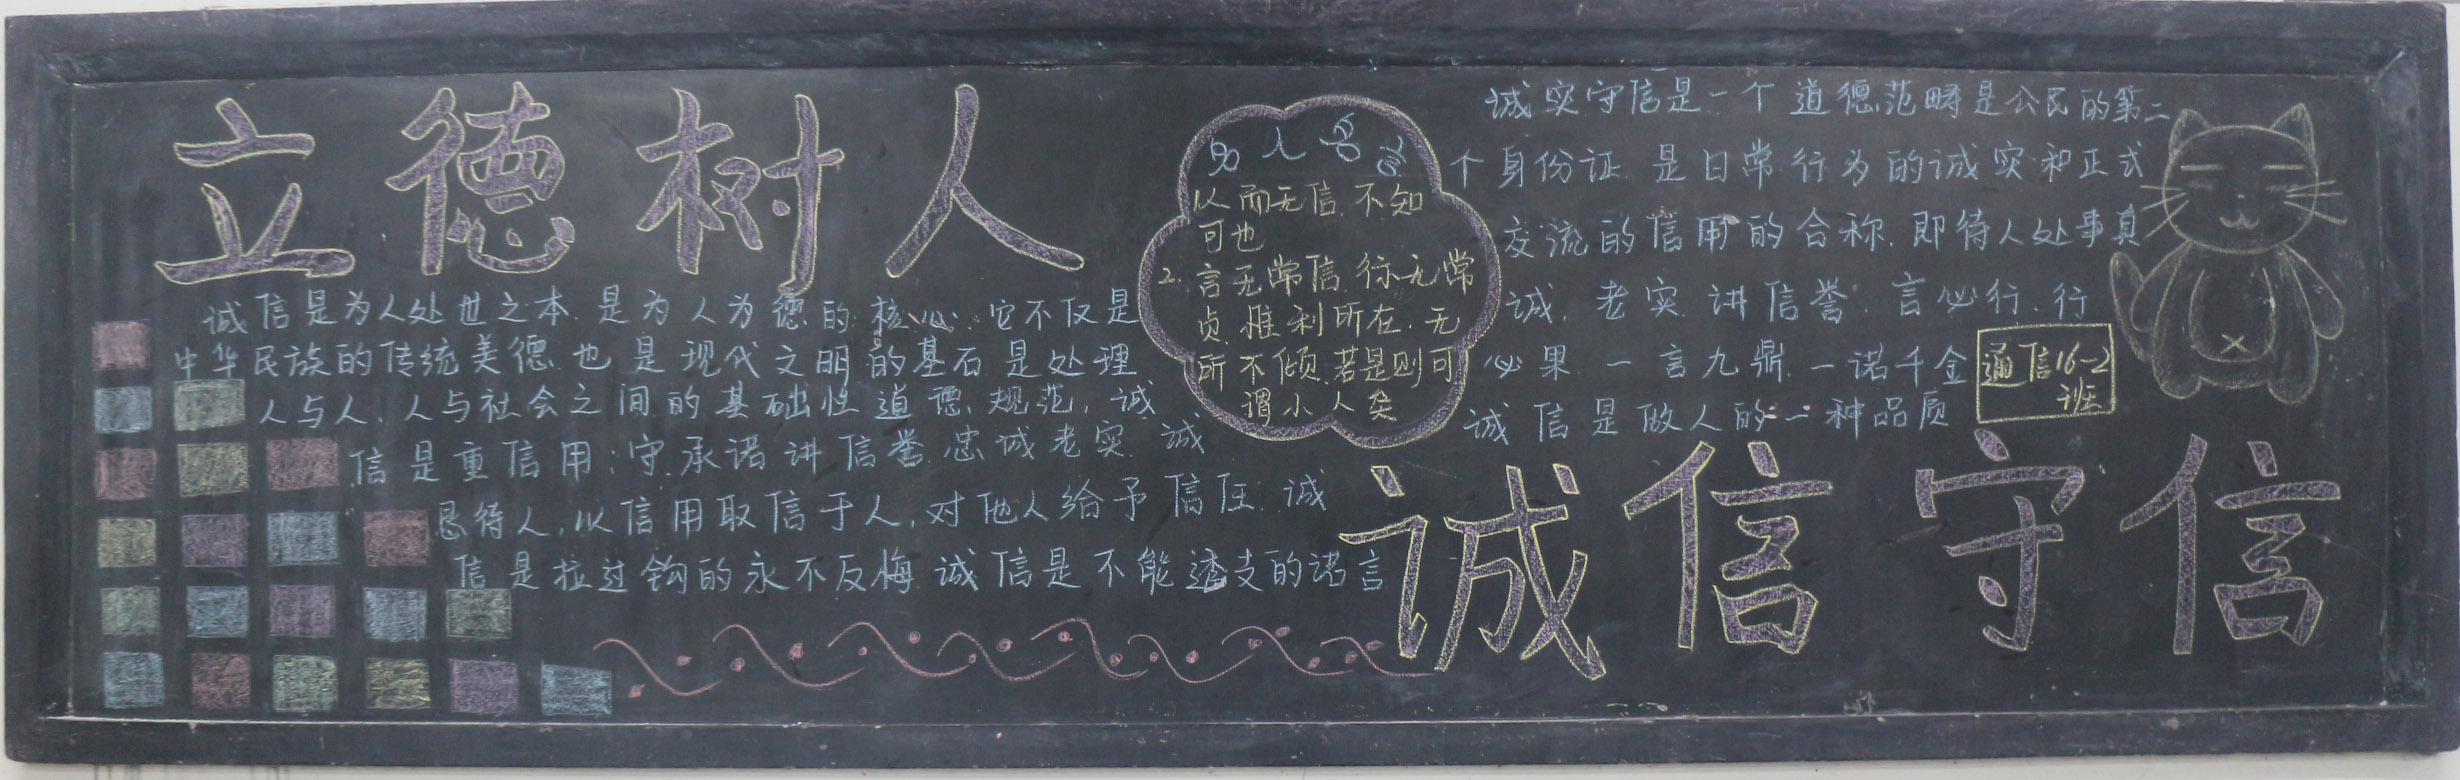 立德树人
诚信是为人处世之本.是为人为德的核心.它不仅是
中华民族的传统美德.也是现代文明的基石是处理
人与人,人与社会之间的基础性道德.规范,诚
信是重信用:守承诺讲信誉忠诚老实.诚
恳待人,以信用取信于人,对他人给予信任.诚
信是拉过钩的永不反悔.诚信是不能透支的诺言
名人名言
以而无信.不知
可也
2.言无常信.行无常
贞.惟利所在.无
所不倾.若是则可
谓小人矣
诚实守信是一个道德范畴是公民的第二
个身份证.是日常行为的诚实和正式
交流的信用的合称.即待人处事真
诚.老实.讲信誉.言必行.行
必果.一言九鼎.一诺千金
诚信是做人的一种品质
通信16-2
班
诚信守信